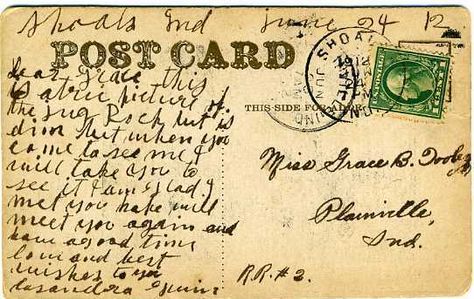 Shoals Ind June 24 12
POST CARD
Dear Grace this
is a tree picture of
the Jug Rock but is
dim but when you
come to see me I
will take you to
see it I am glad I
met you hope will
meet you again and
have a good time
love and best
wishes to you
Casandra
THIS SIDE FOR
SHOALS
JUN
IND
Miss Grace B.
Plainville,
Ind.
R.R. #2.